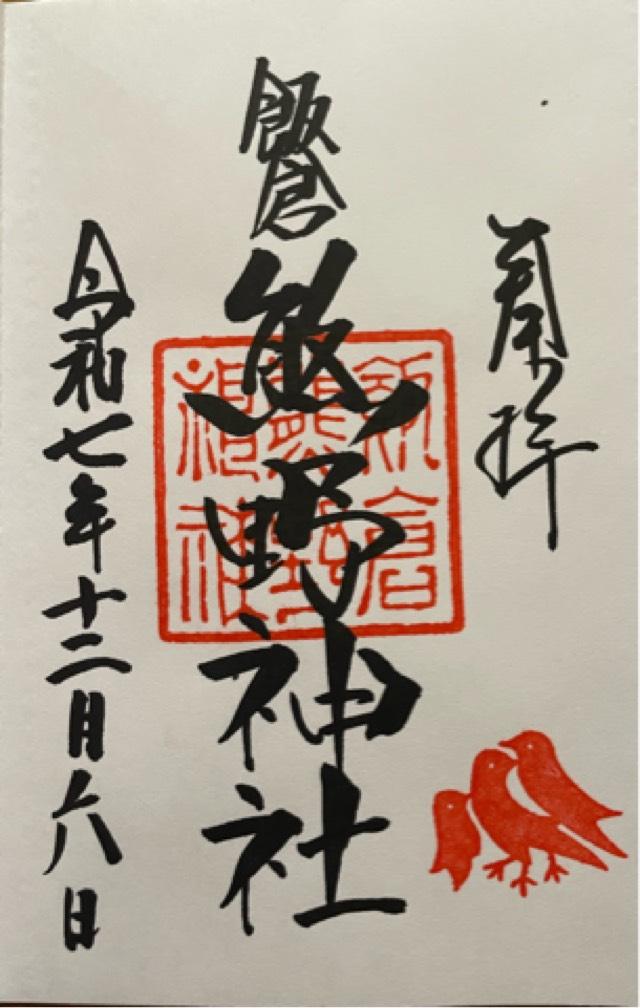 奉拝
飯倉
熊野神社
飯倉
熊野
神社
令和七年十二月六日